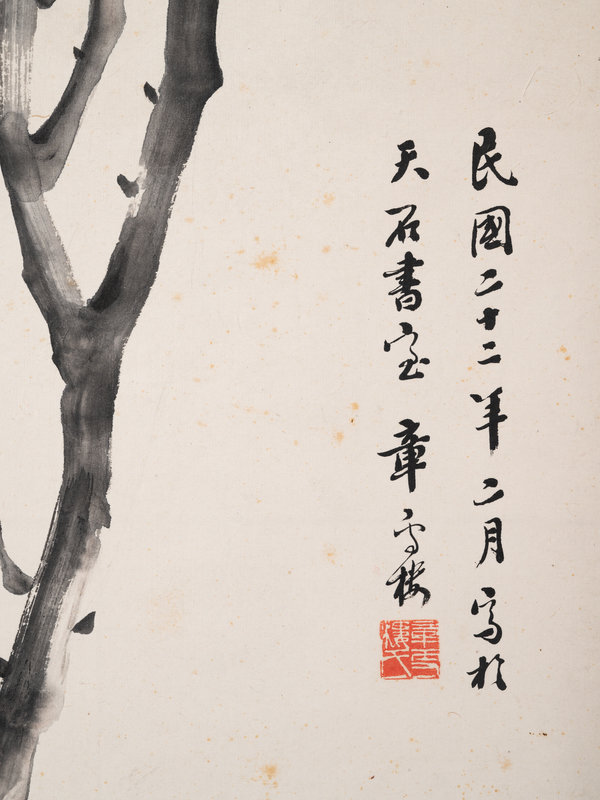 民國二十二年二月寫於
天石書室 章雪樓